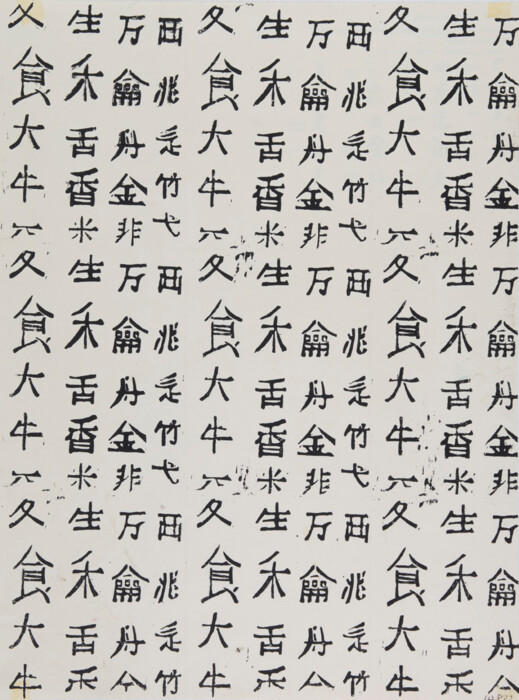 万龠丹金非万龠丹金非万龠丹
生禾舌香米生禾舌香米生禾舌
夂食大牛夂食大牛夂食大牛
西兆辵竹弋西兆辵竹弋西兆辵竹
万龠丹金非万龠丹金非万龠丹
生禾舌香米生禾舌香米生禾舌
夂食大牛夂食大牛夂食大牛
西兆辵竹弋西兆辵竹弋西兆辵竹
万龠丹金非万龠丹金非万龠丹
生禾舌香米生禾舌香米生禾舌
夂食大牛夂食大牛夂食大牛